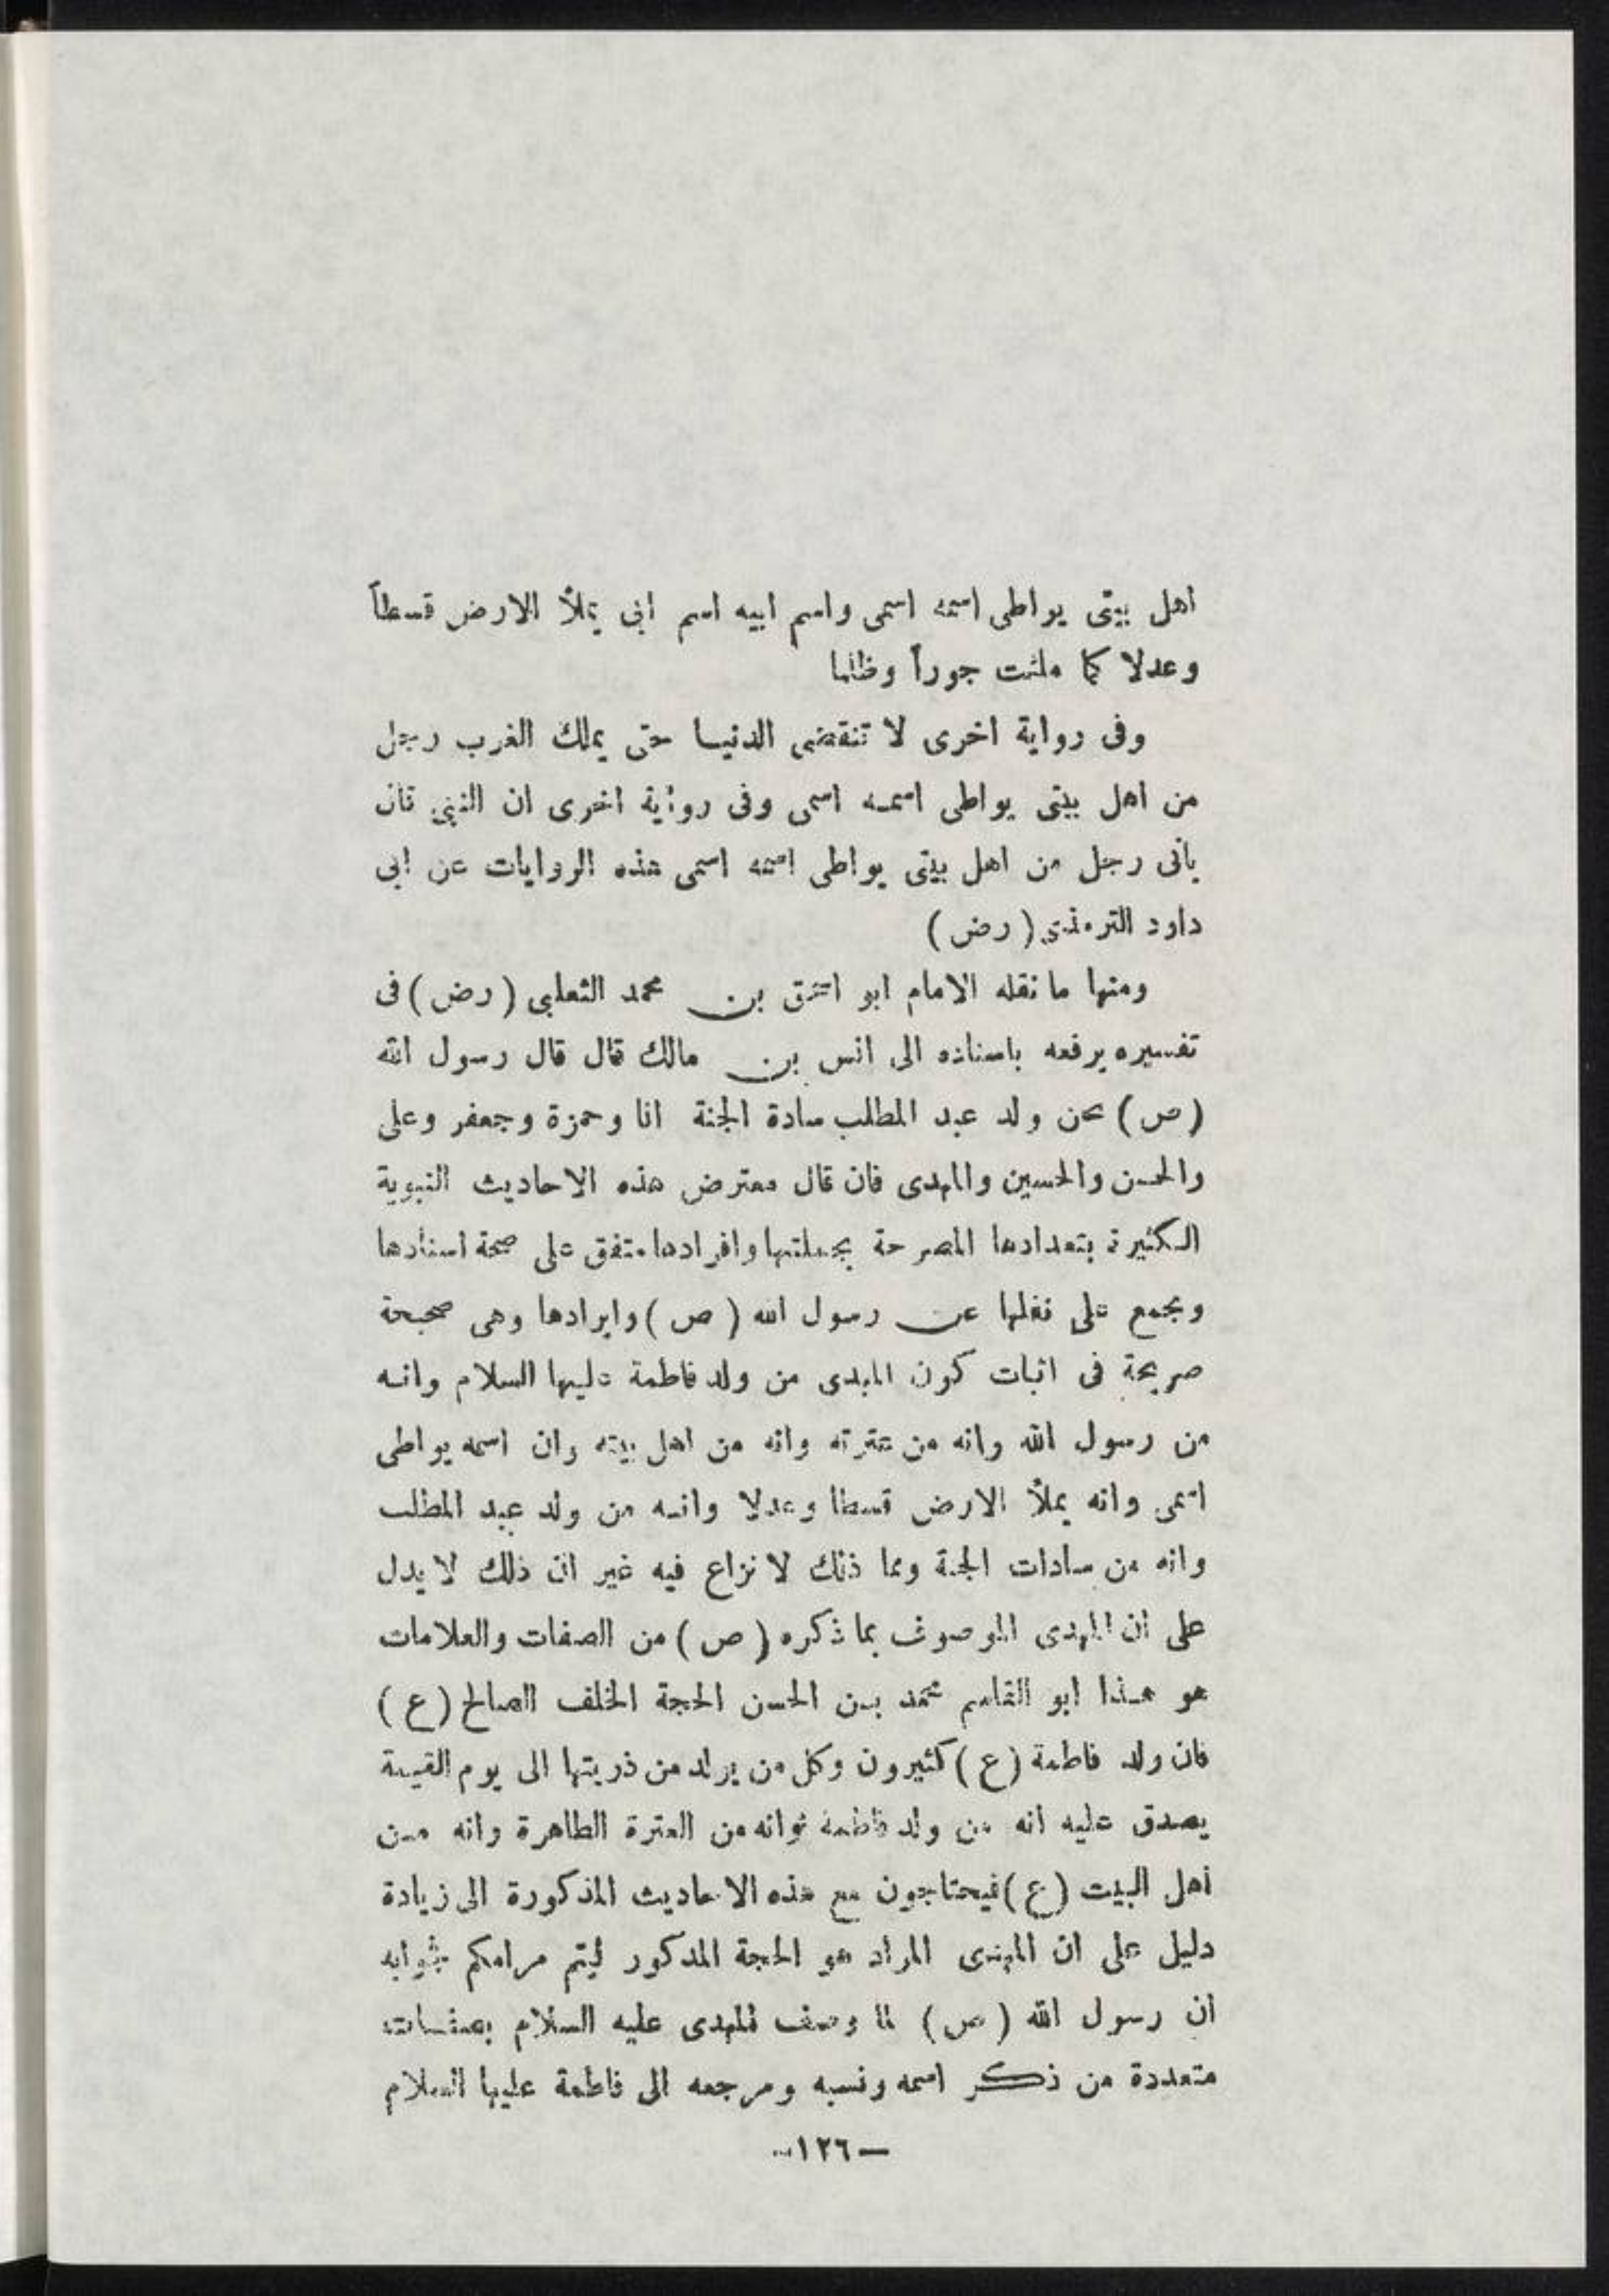 اهل بيتى يواطى اسمه اسمى واسم ابيه اسم ابى يملأ الارض قسطاً
وعدلا كما ملئت جوراً وظلما
وفى رواية اخرى لا تنقضى الدنيا حتى يملك الغرب رجل
من اهل بيتى يواطى اسمه اسمى وفى رواية اخرى ان النبى قال
يأتى رجل من اهل بيتى يواطى اسمه اسمى هذه الروايات عن ابى
داود الترمذى (رض)
ومنها ما نقله الامام ابو اسحق بن محمد الثعلبى (رض) فى
تفسيره يرفعه باسناده الى انس بن مالك قال قال رسول الله
(ص) نحن ولد عبد المطلب سادة الجنة انا وحمزة وجعفر وعلى
والحسن والحسين والمهدى فان قال معترض هذه الاحاديث النبوية
الكثيرة بتعدادها المصرحة بجملتها وافرادها متفق على صحة اسنادها
ويجمع على نقلها عن رسول الله (ص) وايرادها وهى صحيحة
صريحة فى اثبات كون المهدى من ولد فاطمة عليها السلام وانه
من رسول الله وانه من عترته وانه من اهل بيته وان اسمه يواطى
اسمى وانه يملأ الارض قسطا وعدلا وانه من ولد عبد المطلب
وانه من سادات الجنة ومما ذلك لا نزاع فيه غير ان ذلك لا يدل
على ان المهدى الموصوف بما ذكره (ص) من الصفات والعلامات
هو هذا ابو القاسم محمد بن الحسن الحجة الخلف الصالح (ع)
فان ولد فاطمة (ع) كثيرون وكل من يولد من ذريتها الى يوم القيمة
يصدق عليه انه من ولد فاطمة وانه من العترة الطاهرة وانه من
أهل البيت (ع) فيحتاجون مع هذه الاحاديث المذكورة الى زيادة
دليل على ان المهدى المراد هو الحجة المذكور ليتم مرامكم فجوابه
ان رسول الله (ص) لما وصف المهدى عليه السلام بصفات
متعددة من ذكر اسمه ونسبه ومرجعه الى فاطمة عليها السلام
—١٢٦—